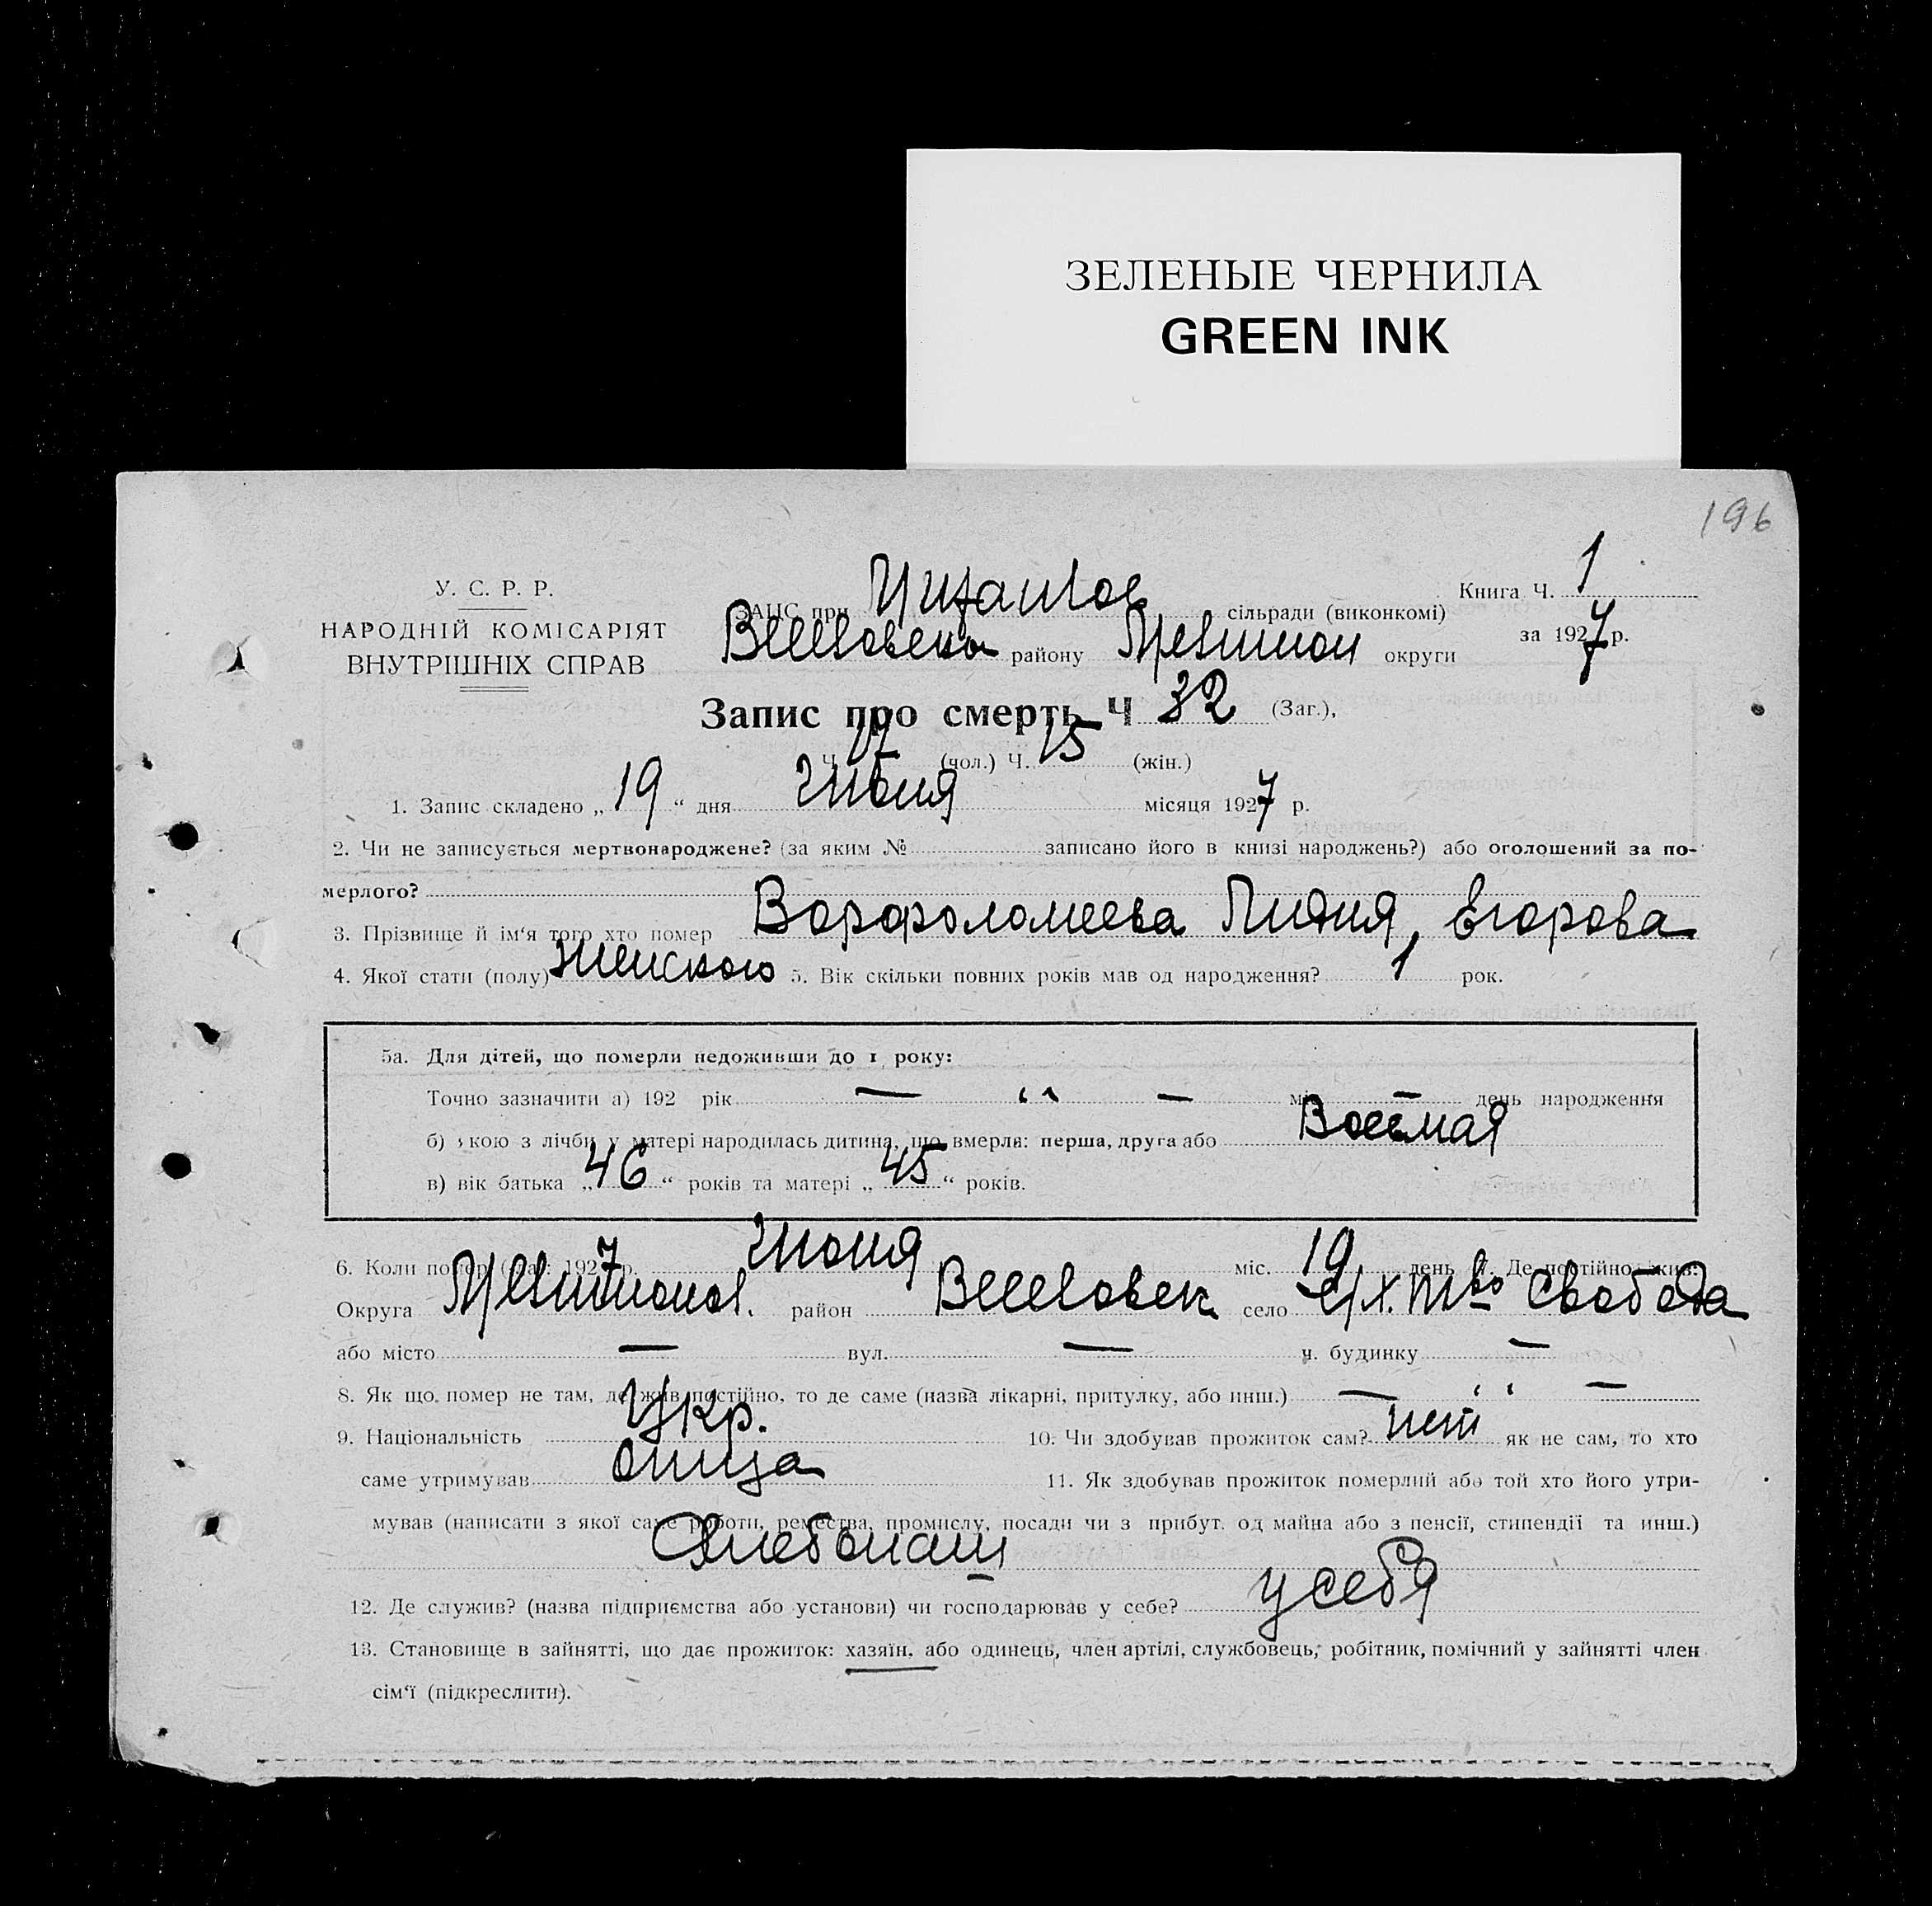 ЗЕЛЕНЫЕ ЧЕРНИЛА
GREEN INK
196
У. С. Р. Р.
НАРОДНІЙ КОМІСАРІЯТ
ВНУТРІШНІХ СПРАВ
ЗАПС при сільради (виконкомі)
району округи
Книга Ч. 1
за 1927 р.
Запис про смерть Ч 32 (Заг.),
Ч. 17 (чол.) Ч. 15 (жін.)
1. Запис складено „ 19 “ дня Июня місяця 1927 р.
2. Чи не записується мертвонароджене? (за яким № записано його в книзі народжень?) або оголошений за по-
мерлого?
3. Прізвище й ім'я того хто помер Ворфоломеева Лидия, Егорова
4. Якої стати (полу) Женского 5. Вік скільки повних років мав од народження? 1 рок.
5а. Для дітей, що померли недоживши до 1 року:
Точно зазначити а) 192 рік — " — міс. — день народження
б) якою з лічби у матері народилась дитина, що вмерла: перша, друга або Восьмая
в) вік батька „ 46 “ років та матері „ 45 “ років.
6. Коли помер 1927 р. Июня міс. 19 день 7. Де постійно жив:
Округа район село с/х. тво Свобода
або місто — вул. — ч. будинку —
8. Як що помер не там, де жив постійно, то де саме (назва лікарні, притулку, або инш.) — " —
9. Національність Укр. 10. Чи здобував прожиток сам? нет як не сам, то хто
саме утримував отца 11. Як здобував прожиток померлий або той хто його утри-
мував (написати з якої саме роботи, ремества, промислу, посади чи з прибут. од майна або з пенсії, стипендії та инш.)
Хлебопаш
12. Де служив? (назва підприємства або установи) чи господарював у себе? у себя
13. Становище в зайнятті, що дає прожиток: хазяїн, або одинець, член артілі, службовець, робітник, помічний у зайнятті член
сім'ї (підкреслити).